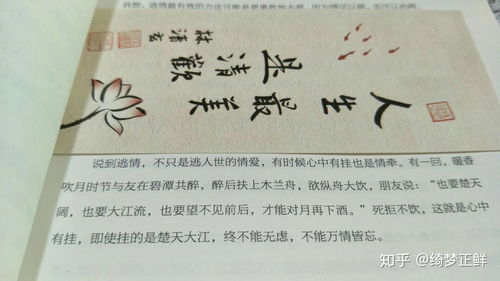 我想，逃情最有效的方法可能是更勇敢地去爱，因为情可以病，也可以治病。
人生
最美
是清歡
林清玄
说到逃情，不只是逃人世的情爱，有时候心中有挂也是情牵。有一回，暖香
吹月时节与友在碧潭共醉，醉后扶上木兰舟，欲纵舟大饮，朋友说：“也要楚天
阔，也要大江流，也要望不见前后，才能对月再下酒。”死拒不饮，这就是心中
有挂，即使挂的是楚天大江，终不能无虑，不能万情皆忘。
知乎 @绮梦正鲜